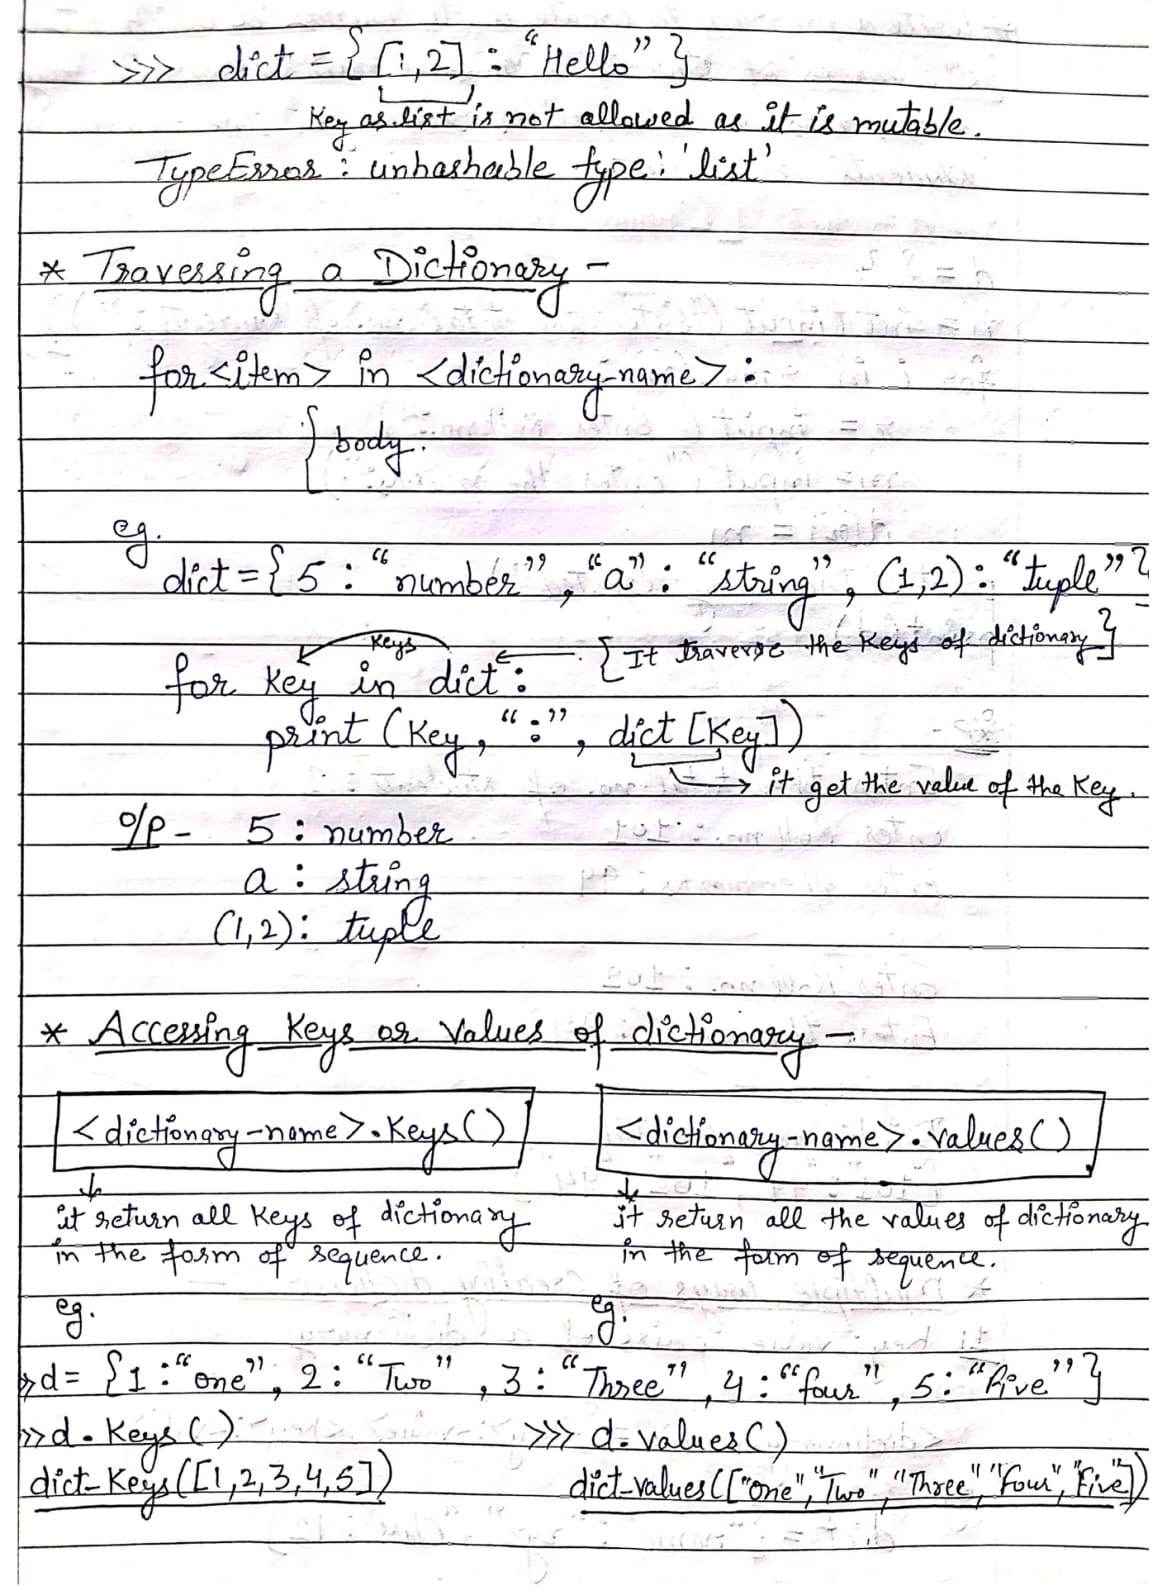 >>> dict = { [1,2] : "Hello" }
Key as list is not allowed as it is mutable.
TypeError : unhasheble type : 'list'
* Traverssing a Dictionary -
for <item> in <dictionary-name> :
{ body.
eg.
dict = { 5 : "number", "a" : "string", (1,2) : "tuple" }
Keys
{ It traverse the Keys of dictionary }
for Key in dict :
print (Key, ":", dict [Key])
it get the value of the Key.
O/P - 5 : number
a : string
(1,2) : tuple
* Accessing Keys or Values of dictionary -
<dictionary-name>.Keys() <dictionary-name>.values()
it return all Keys of dictionary it return all the values of dictionary
in the form of sequence. in the form of sequence.
eg. eg.
>> d = {1 : "one", 2 : "Two", 3 : "Three", 4 : "four", 5 : "five"}
>> d.Keys() >>> d.values()
dict_Keys([1,2,3,4,5]) dict_values(["one", "Two", "Three", "Four", "Five"])